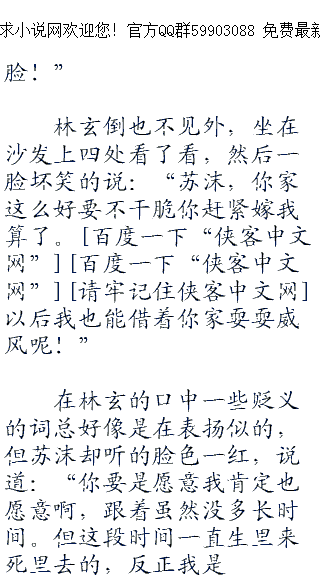 求小说网欢迎您！官方QQ群59903088 免费最新
脸！”
林玄倒也不见外，坐在
沙发上四处看了看，然后一
脸坏笑的说：“苏沫，你家
这么好要不干脆你赶紧嫁我
算了。[百度一下“侠客中文
网”][百度一下“侠客中文
网”][请牢记住侠客中文网]
以后我也能借着你家耍耍威
风呢！”
在林玄的口中一些贬义
的词总好像是在表扬似的，
但苏沫却听的脸色一红，说
道：“你要是愿意我肯定也
愿意啊，跟着虽然没多长时
间。但这段时间一直生里来
死里去的，反正我是